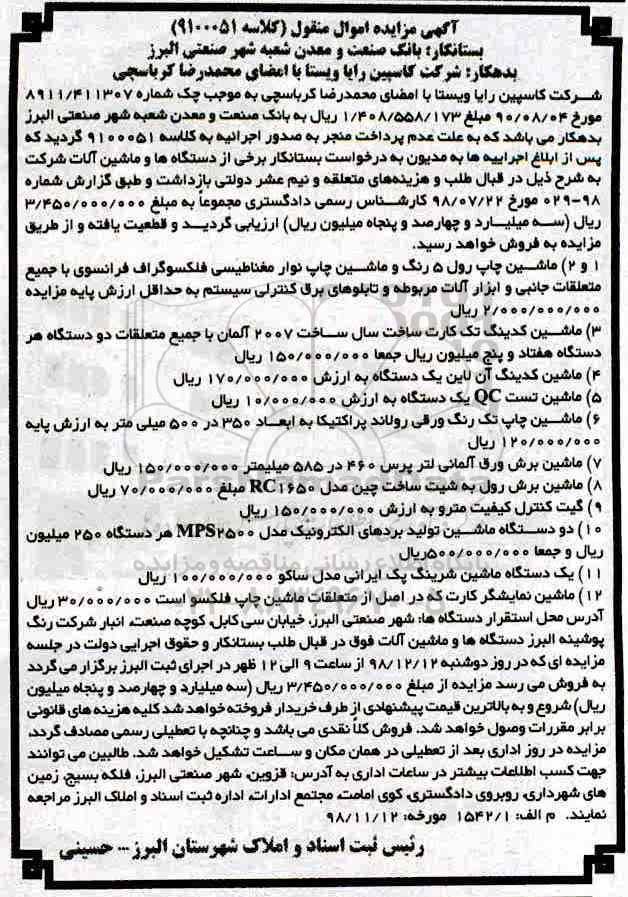 آگهی مزایده اموال منقول (کلاسه ۹۱۰۰۰۵۱)
بستانکار: بانک صنعت و معدن شعبه شهر صنعتی البرز
بدهکار: شرکت کاسپین رایا ویستا با امضای محمدرضا کرباسچی
شرکت کاسپین رایا ویستا با امضای محمدرضا کرباسچی به موجب چک شماره ۸۹۱۱/۴۱۱۳۰۷
مورخ ۹۰/۰۸/۰۴ مبلغ ۱/۴۰۸/۵۵۸/۱۷۳ ریال به بانک صنعت و معدن شعبه شهر صنعتی البرز
بدهکار می باشد که به علت عدم پرداخت منجر به صدور اجرائیه به کلاسه ۹۱۰۰۰۵۱ گردید که
پس از ابلاغ اجراییه ها به مدیون به درخواست بستانکار برخی از دستگاه ها و ماشین آلات شرکت
به شرح ذیل در قبال طلب و هزینه‌های متعلقه و نیم عشر دولتی بازداشت و طبق گزارش شماره
۰۲۹-۹۸ مورخ ۹۸/۰۷/۲۲ کارشناس رسمی دادگستری مجموعاً به مبلغ ۳/۴۵۰/۰۰۰/۰۰۰
ریال (سه میلیارد و چهارصد و پنجاه میلیون ریال) ارزیابی گردید و قطعیت یافته و از طریق
مزایده به فروش خواهد رسید.
۱ و ۲) ماشین چاپ رول ۵ رنگ و ماشین چاپ نوار مغناطیسی فلکسوگراف فرانسوی با جمیع
متعلقات جانبی و ابزار آلات مربوطه و تابلوهای برق کنترلی سیستم به حداقل ارزش پایه مزایده
۲/۰۰۰/۰۰۰/۰۰۰ ریال
۳) ماشین کدینگ تک کارت ساخت سال ساخت ۲۰۰۷ آلمان با جمیع متعلقات دو دستگاه هر
دستگاه هفتاد و پنج میلیون ریال جمعا ۱۵۰/۰۰۰/۰۰۰ ریال
۴) ماشین کدینگ آن لاین یک دستگاه به ارزش ۱۷۰/۰۰۰/۰۰۰ ریال
۵) ماشین تست QC یک دستگاه به ارزش ۱۰/۰۰۰/۰۰۰ ریال
۶) ماشین چاپ تک رنگ ورقی رولاند پراکتیکا به ابعاد ۳۵۰ در ۵۰۰ میلی متر به ارزش پایه
۱۲۰/۰۰۰/۰۰۰ ریال
۷) ماشین برش ورق آلمانی لتر پرس ۴۶۰ در ۵۸۵ میلیمتر ۱۵۰/۰۰۰/۰۰۰ ریال
۸) ماشین برش رول به شیت ساخت چین مدل RC۱۶۵۰ مبلغ ۷۰/۰۰۰/۰۰۰ ریال
۹) گیت کنترل کیفیت مترو به ارزش ۱۵۰/۰۰۰/۰۰۰ ریال
۱۰) دو دستگاه ماشین تولید بردهای الکترونیک مدل MPS۲۵۰۰ هر دستگاه ۲۵۰ میلیون
ریال و جمعا ۵۰۰/۰۰۰/۰۰۰ریال
۱۱) یک دستگاه ماشین شرینگ پک ایرانی مدل ساکو ۱۰۰/۰۰۰/۰۰۰ ریال
۱۲) ماشین نمایشگر کارت که در اصل از متعلقات ماشین چاپ فلکسو است ۳۰/۰۰۰/۰۰۰ ریال
آدرس محل استقرار دستگاه ها: شهر صنعتی البرز، خیابان سی کابل، کوچه صنعت، انبار شرکت رنگ
پوشینه البرز دستگاه ها و ماشین آلات فوق در قبال طلب بستانکار و حقوق اجرایی دولت در جلسه
مزایده ای که در روز دوشنبه ۹۸/۱۲/۱۲ از ساعت ۹ الی ۱۲ ظهر در اجرای ثبت البرز برگزار می گردد
به فروش می رسد مزایده از مبلغ ۳/۴۵۰/۰۰۰/۰۰۰ ریال (سه میلیارد و چهارصد و پنجاه میلیون
ریال) شروع و به بالاترین قیمت پیشنهادی از طرف خریدار فروخته خواهد شد کلیه هزینه های قانونی
برابر مقررات وصول خواهد شد. فروش کلاً نقدی می باشد و چنانچه با تعطیلی رسمی مصادف گردد،
مزایده در روز اداری بعد از تعطیلی در همان مکان و ساعت تشکیل خواهد شد. طالبین می توانند
جهت کسب اطلاعات بیشتر در ساعات اداری به آدرس: قزوین، شهر صنعتی البرز، فلکه بسیج، زمین
های شهرداری، روبروی دادگستری، کوی امامت، مجتمع ادارات، اداره ثبت اسناد و املاک البرز مراجعه
نمایند. م الف: ۱۵۴۲/۱ مورخه: ۹۸/۱۱/۱۲
رئیس ثبت اسناد و املاک شهرستان البرز... حسینی